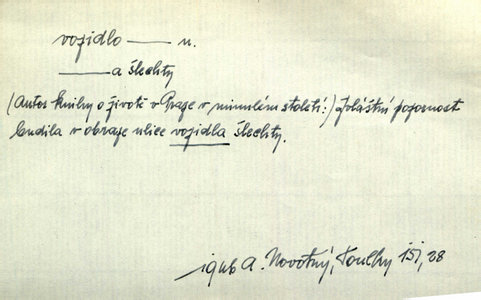 vozidlo — n.
— a šlechty
(Autor knihy o životě v Praze v minulém století:) Zvláštní pozornost
budila v obraze ulice vozidla šlechty.
A. Novotný, Toulky 151, 28